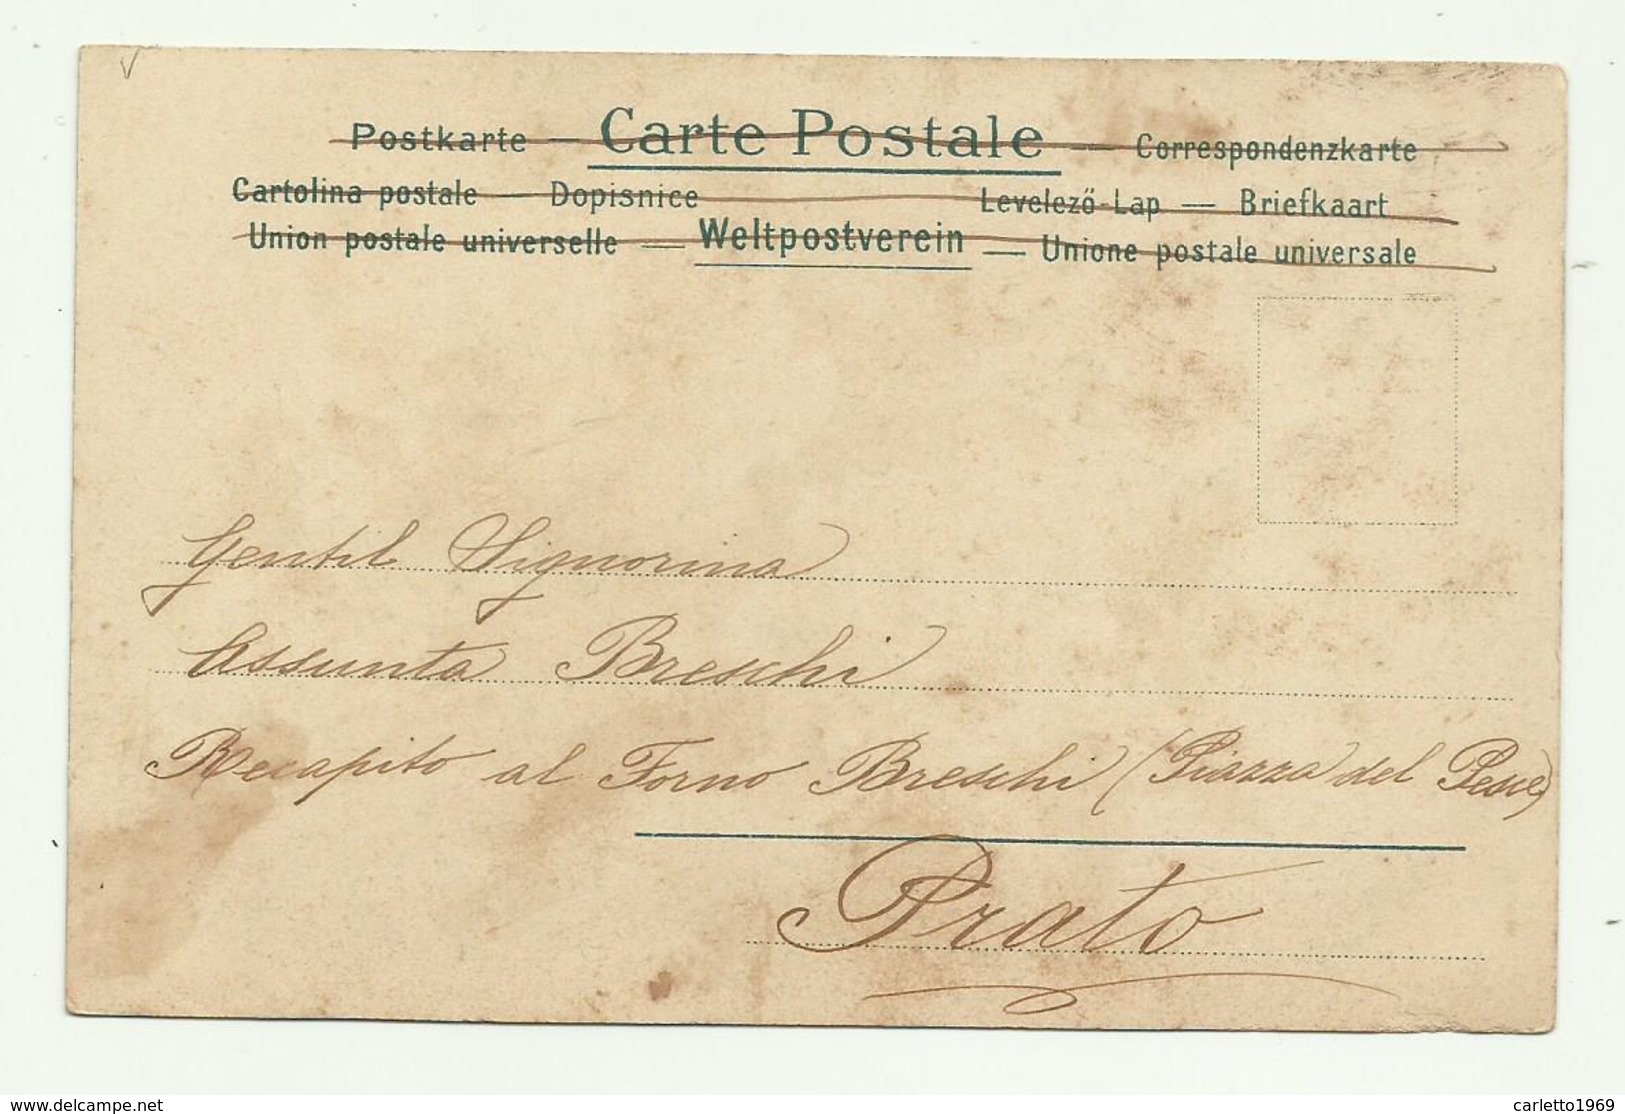 Postkarte — Carte Postale — Correspondenzkarte
Cartolina postale — Dopisnice Levelező-Lap — Briefkaart
Union postale universelle — Weltpostverein — Unione postale universale
Gentil Signorina
Assunta Breschi
Recapito al Forno Breschi (Piazza del Pesce)
Prato
www.delcampe.net
carletto1969